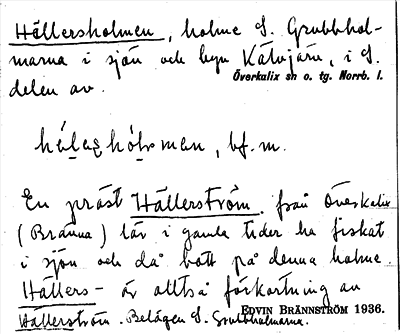 Hällersholmen, holme S. Grubbhol-
marna i sjön och byn Kätvjärn, i S.
delen av
Överkalix sn o. tg. Norrb. l.
hálaşhólmman, bf. m.
En präst Hällerström från Överkalix
(Bränna) lär i gamla tider ha fiskat
i sjön och då bott på denna holme.
Hällers- är alltså förkortning av
EDVIN BRÄNNSTRÖM 1936.
Hällerström. Belägen S. Grubbholmarna.